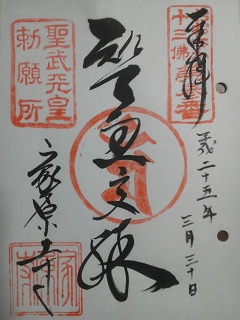 奉拝
十三佛第三番
平成二十五年
三月三十日
智恵文殊
聖武天皇
勅願所
家原寺